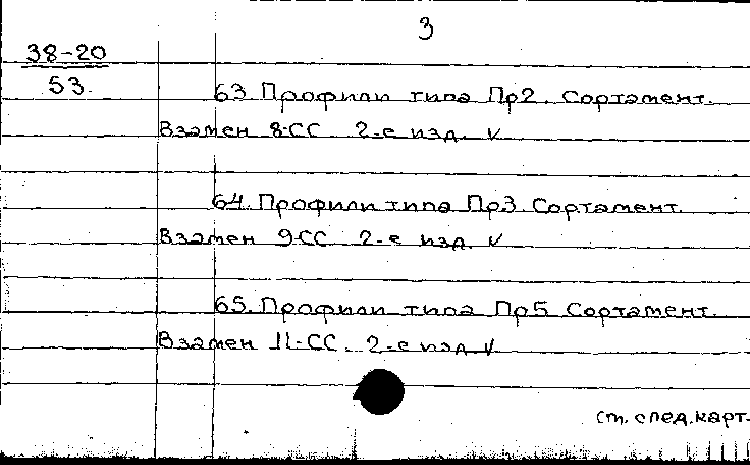 3
38-20
53.
63. Профили типа Пр2. Сортамент.
Взамен 8-СС. 2-е изд. V
64. Профили типа Пр3. Сортамент.
Взамен 9-СС 2-е изд. V
65. Профили типа Пр5 Сортамент.
Взамен 11-СС. 2-е изд V
См. след. карт.